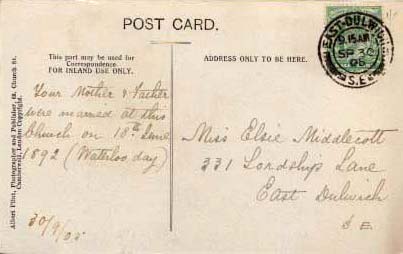 POST CARD.
This part may be used for
Correspondence.
FOR INLAND USE ONLY.
ADDRESS ONLY TO BE HERE.
EAST-DULWICH
9.15AM
SP 30
05
S.E
Your Mother & Father
were married at this
Church on 18th June
1892 (Waterloo day)
30/9/05
Miss Elsie Middlecott
331 Lordship Lane
East Dulwich
S E.
Albert Flint, Photographer and Publisher, 68, Church St.
Camberwell, London Copyright.